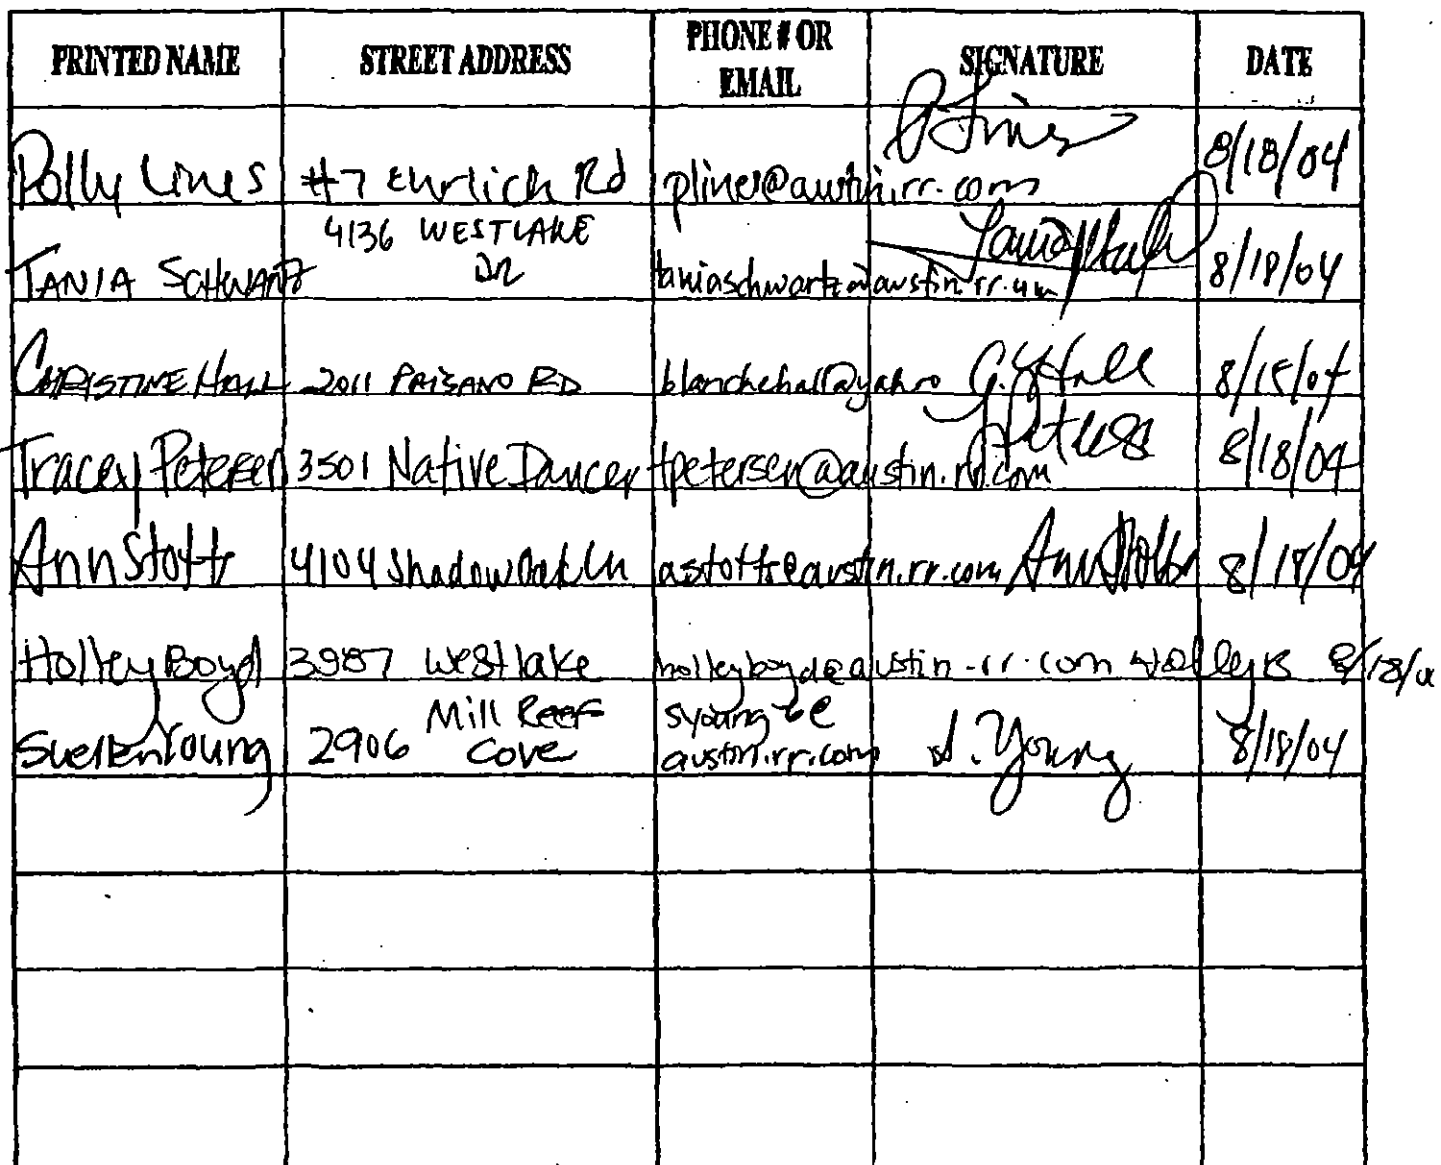 PRINTED NAME STREET ADDRESS PHONE # OR EMAIL SIGNATURE DATE
Polly Lines #7 Ehrlich Rd pliner@austin.rr.com P Lines 8/18/04
TANIA SCHWARTZ 4136 WESTLAKE DR taniaschwartz@austin.rr.com 8/18/04
CHRISTINE HALL 2011 PAISANO RD blanchehall@yahoo C. Hall 8/18/04
Tracey Petersen 3501 Native Dancer tpetersen@austin.rr.com 8/18/04
Ann Stotts 4104 Shadow Oak Ln astotts@austin.rr.com Ann Stotts 8/18/04
Holley Boyd 3987 Westlake holleyboyd@austin.rr.com Holley B 8/18/0
Suellen Young 2906 Mill Reef Cove syoung6@austin.rr.com S. Young 8/18/04